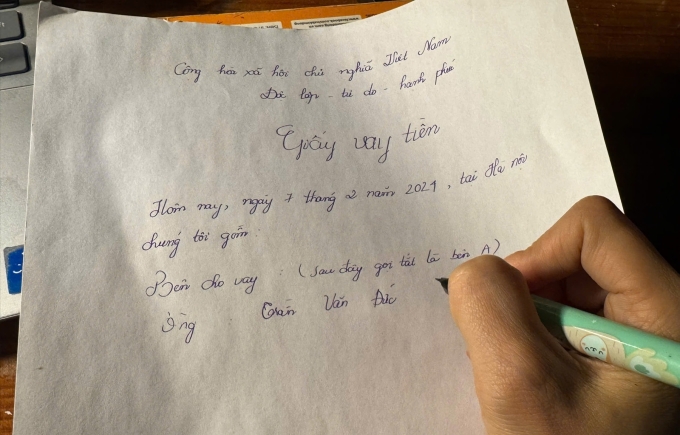 Cộng hòa xã hội chủ nghĩa Việt Nam
Độc lập - tự do - hạnh phúc
Giấy vay tiền
Hôm nay, ngày 7 tháng 2 năm 2024, tại Hà nội
chúng tôi gồm:
Bên cho vay : (sau đây gọi tắt là bên A)
Ông Trần Văn Đức